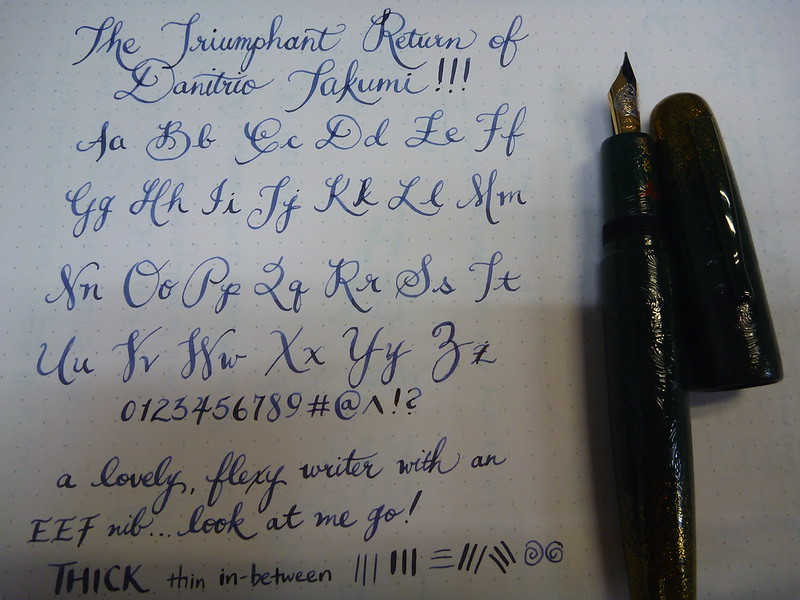 The Triumphant Return of
Danitrio Takumi!!!
Aa Bb Cc Dd Ee Ff
Gg Hh Ii Jj Kk Ll Mm
Nn Oo Pp Qq Rr Ss Tt
Uu Vv Ww Xx Yy Zz
0123456789#@^!?
a lovely, flexy writer with an
EEF nib... look at me go!
THICK thin in-between